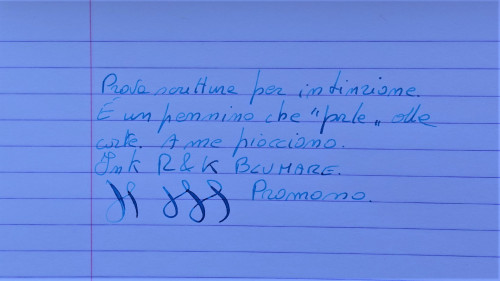 Prova scrittura per intinzione.
È un pennino che "parla" alla
carta. A me piacciono.
Ink R & K BLUMARE.
Promono.